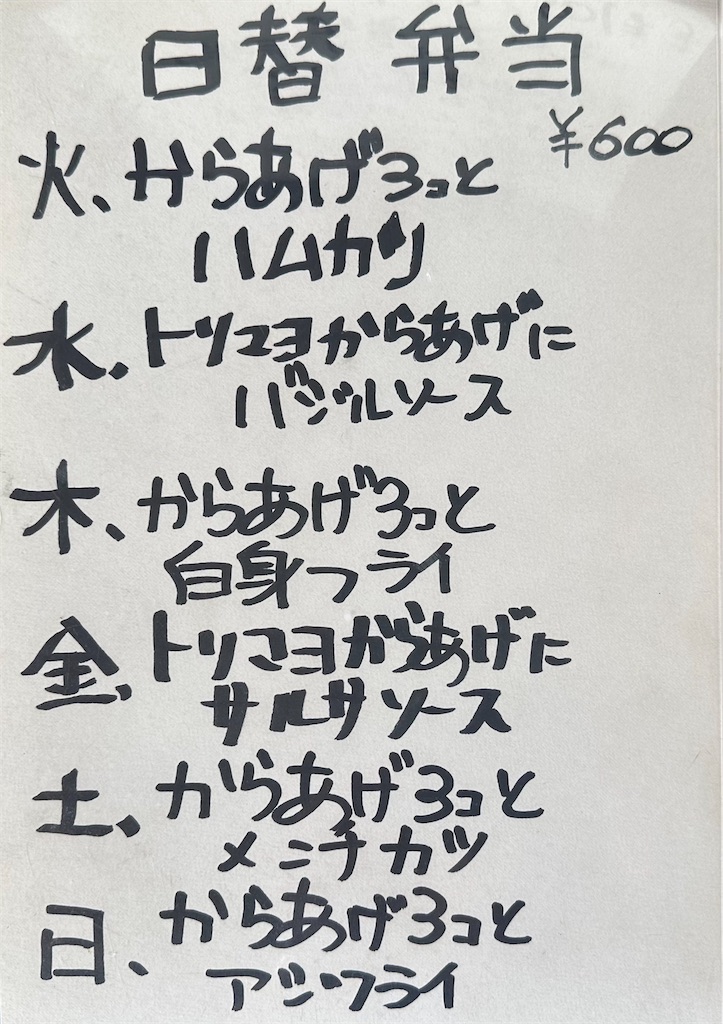 日替弁当
¥600
火、からあげ3コと
ハムカツ
水、トリマヨからあげに
バジルソース
木、からあげ3コと
白身フライ
金、トリマヨからあげに
サルサソース
土、からあげ3コと
メンチカツ
日、からあげ3コと
アジフライ